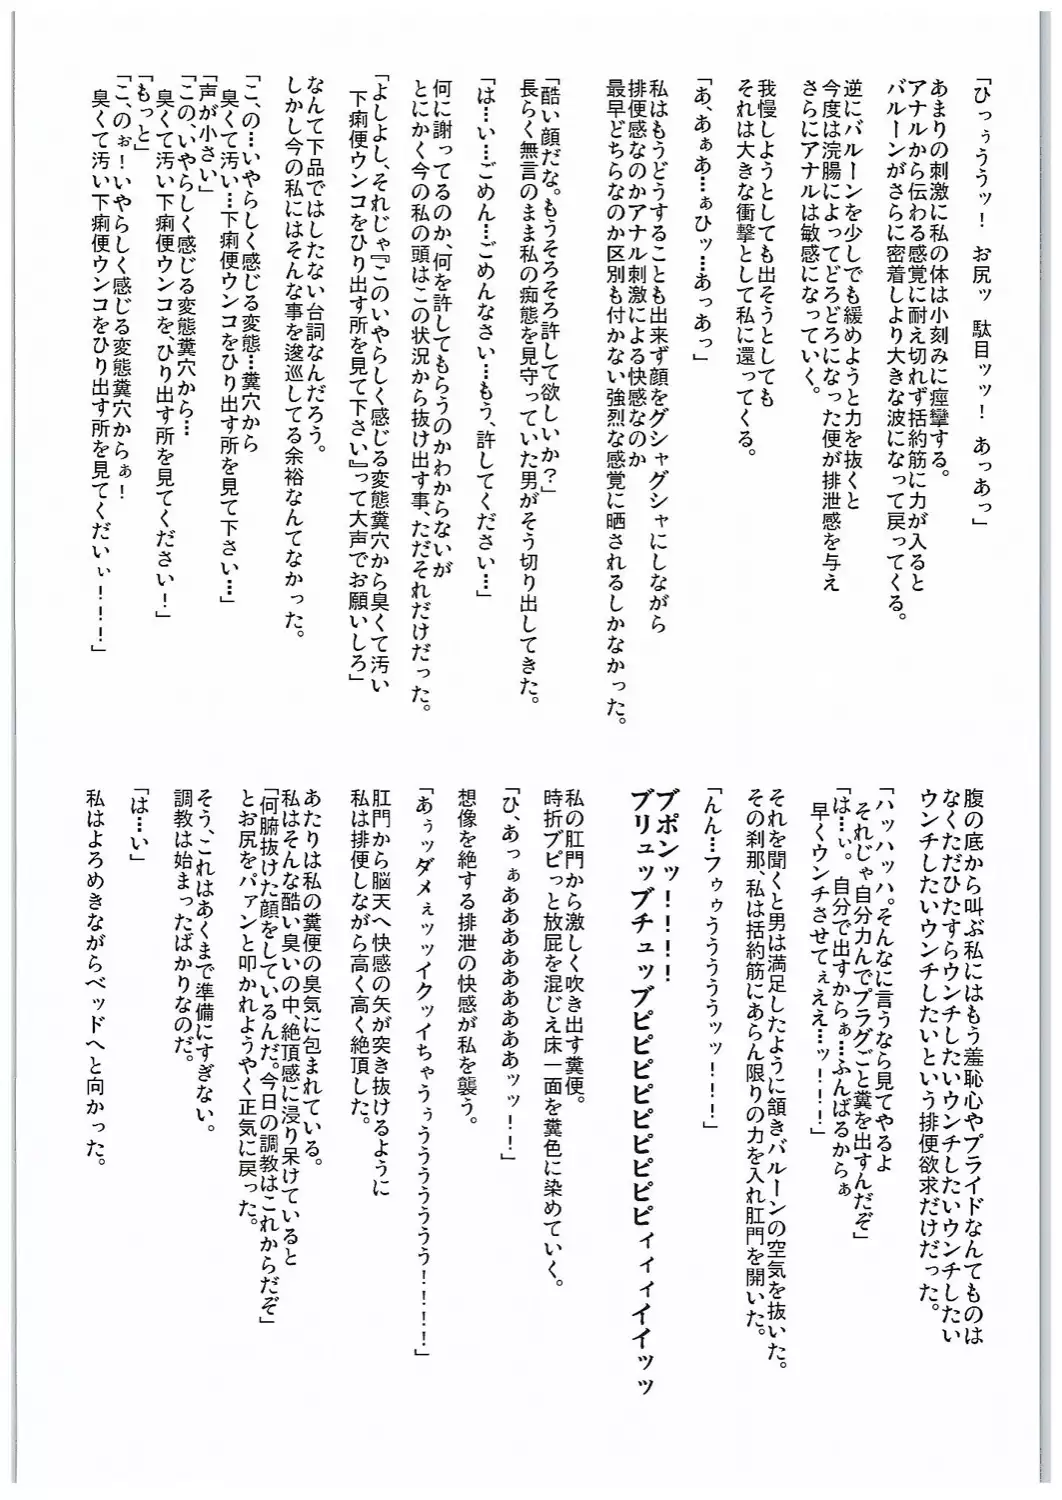 「ひっぅううッ！　お尻ッ　駄目ッッ！　あっあっ」
あまりの刺激に私の体は小刻みに痙攣する。
アナルから伝わる感覚に耐え切れず括約筋に力が入ると
バルーンがさらに密着しより大きな波になって戻ってくる。
逆にバルーンを少しでも緩めようと力を抜くと
今度は浣腸によってどろどろになった便が排泄感を与え
さらにアナルは敏感になっていく。
我慢しようとしても出そうとしても
それは大きな衝撃として私に還ってくる。
「あ、あぁあ…ぁひッ…あっあっ」
私はもうどうすることも出来ず顔をグシャグシャにしながら
排便感なのかアナル刺激による快感なのか
最早どちらなのか区別も付かない強烈な感覚に晒されるしかなかった。
「酷い顔だな。もうそろそろ許して欲しいか？」
長らく無言のまま私の痴態を見守っていた男がそう切り出してきた。
「は…い…ごめん…ごめんなさい…もう、許してください…」
何に謝ってるのか、何を許してもらうのかわからないが
とにかく今の私の頭はこの状況から抜け出す事、ただそれだけだった。
「よしよし、それじゃ『このいやらしく感じる変態糞穴から臭くて汚い
下痢便ウンコをひり出す所を見て下さい』って大声でお願いしろ」
なんて下品ではしたない台詞なんだろう。
しかし今の私にはそんな事を逡巡してる余裕なんてなかった。
「こ、の…いやらしく感じる変態…糞穴から
臭くて汚い…下痢便ウンコをひり出す所を見て下さい…」
「声が小さい」
「この、いやらしく感じる変態糞穴から…
臭くて汚い下痢便ウンコを、ひり出す所を見てください！」
「もっと」
「こ、のぉ！いやらしく感じる変態糞穴からぁ！
臭くて汚い下痢便ウンコをひり出す所を見てくだいぃ！！！」
腹の底から叫ぶ私にはもう羞恥心やプライドなんてものは
なくただひたすらウンチしたいウンチしたいウンチしたい
ウンチしたいウンチしたいという排便欲求だけだった。
「ハッハッハ。そんなに言うなら見てやるよ
それじゃ自分力んでプラグごと糞を出すんだぞ」
「は…ぃ。自分で出すからぁ…ふんばるからぁ
早くウンチさせてぇええ…ッ！！！」
それを聞くと男は満足したように頷きバルーンの空気を抜いた。
その刹那、私は括約筋にあらん限りの力を入れ肛門を開いた。
「んん…フゥゥうううううッッ！！！」
ブポンッ！！！！
ブリュッブチュッブピピピピピピピピィィィイイッッ
私の肛門から激しく吹き出す糞便。
時折ブピっと放屁を混じえ床一面を糞色に染めていく。
「ひ、あっぁああああああああッッ！！」
想像を絶する排泄の快感が私を襲う。
「あぅッダメぇッッイクッイちゃうぅうううううう！！！！」
肛門から脳天へ快感の矢が突き抜けるように
私は排便しながら高く高く絶頂した。
あたりは私の糞便の臭気に包まれている。
私はそんな酷い臭いの中、絶頂感に浸り呆けていると
「何腑抜けた顔をしているんだ。今日の調教はこれからだぞ」
とお尻をパァンと叩かれようやく正気に戻った。
そう、これはあくまで準備にすぎない。
調教は始まったばかりなのだ。
「は…い」
私はよろめきながらベッドへと向かった。